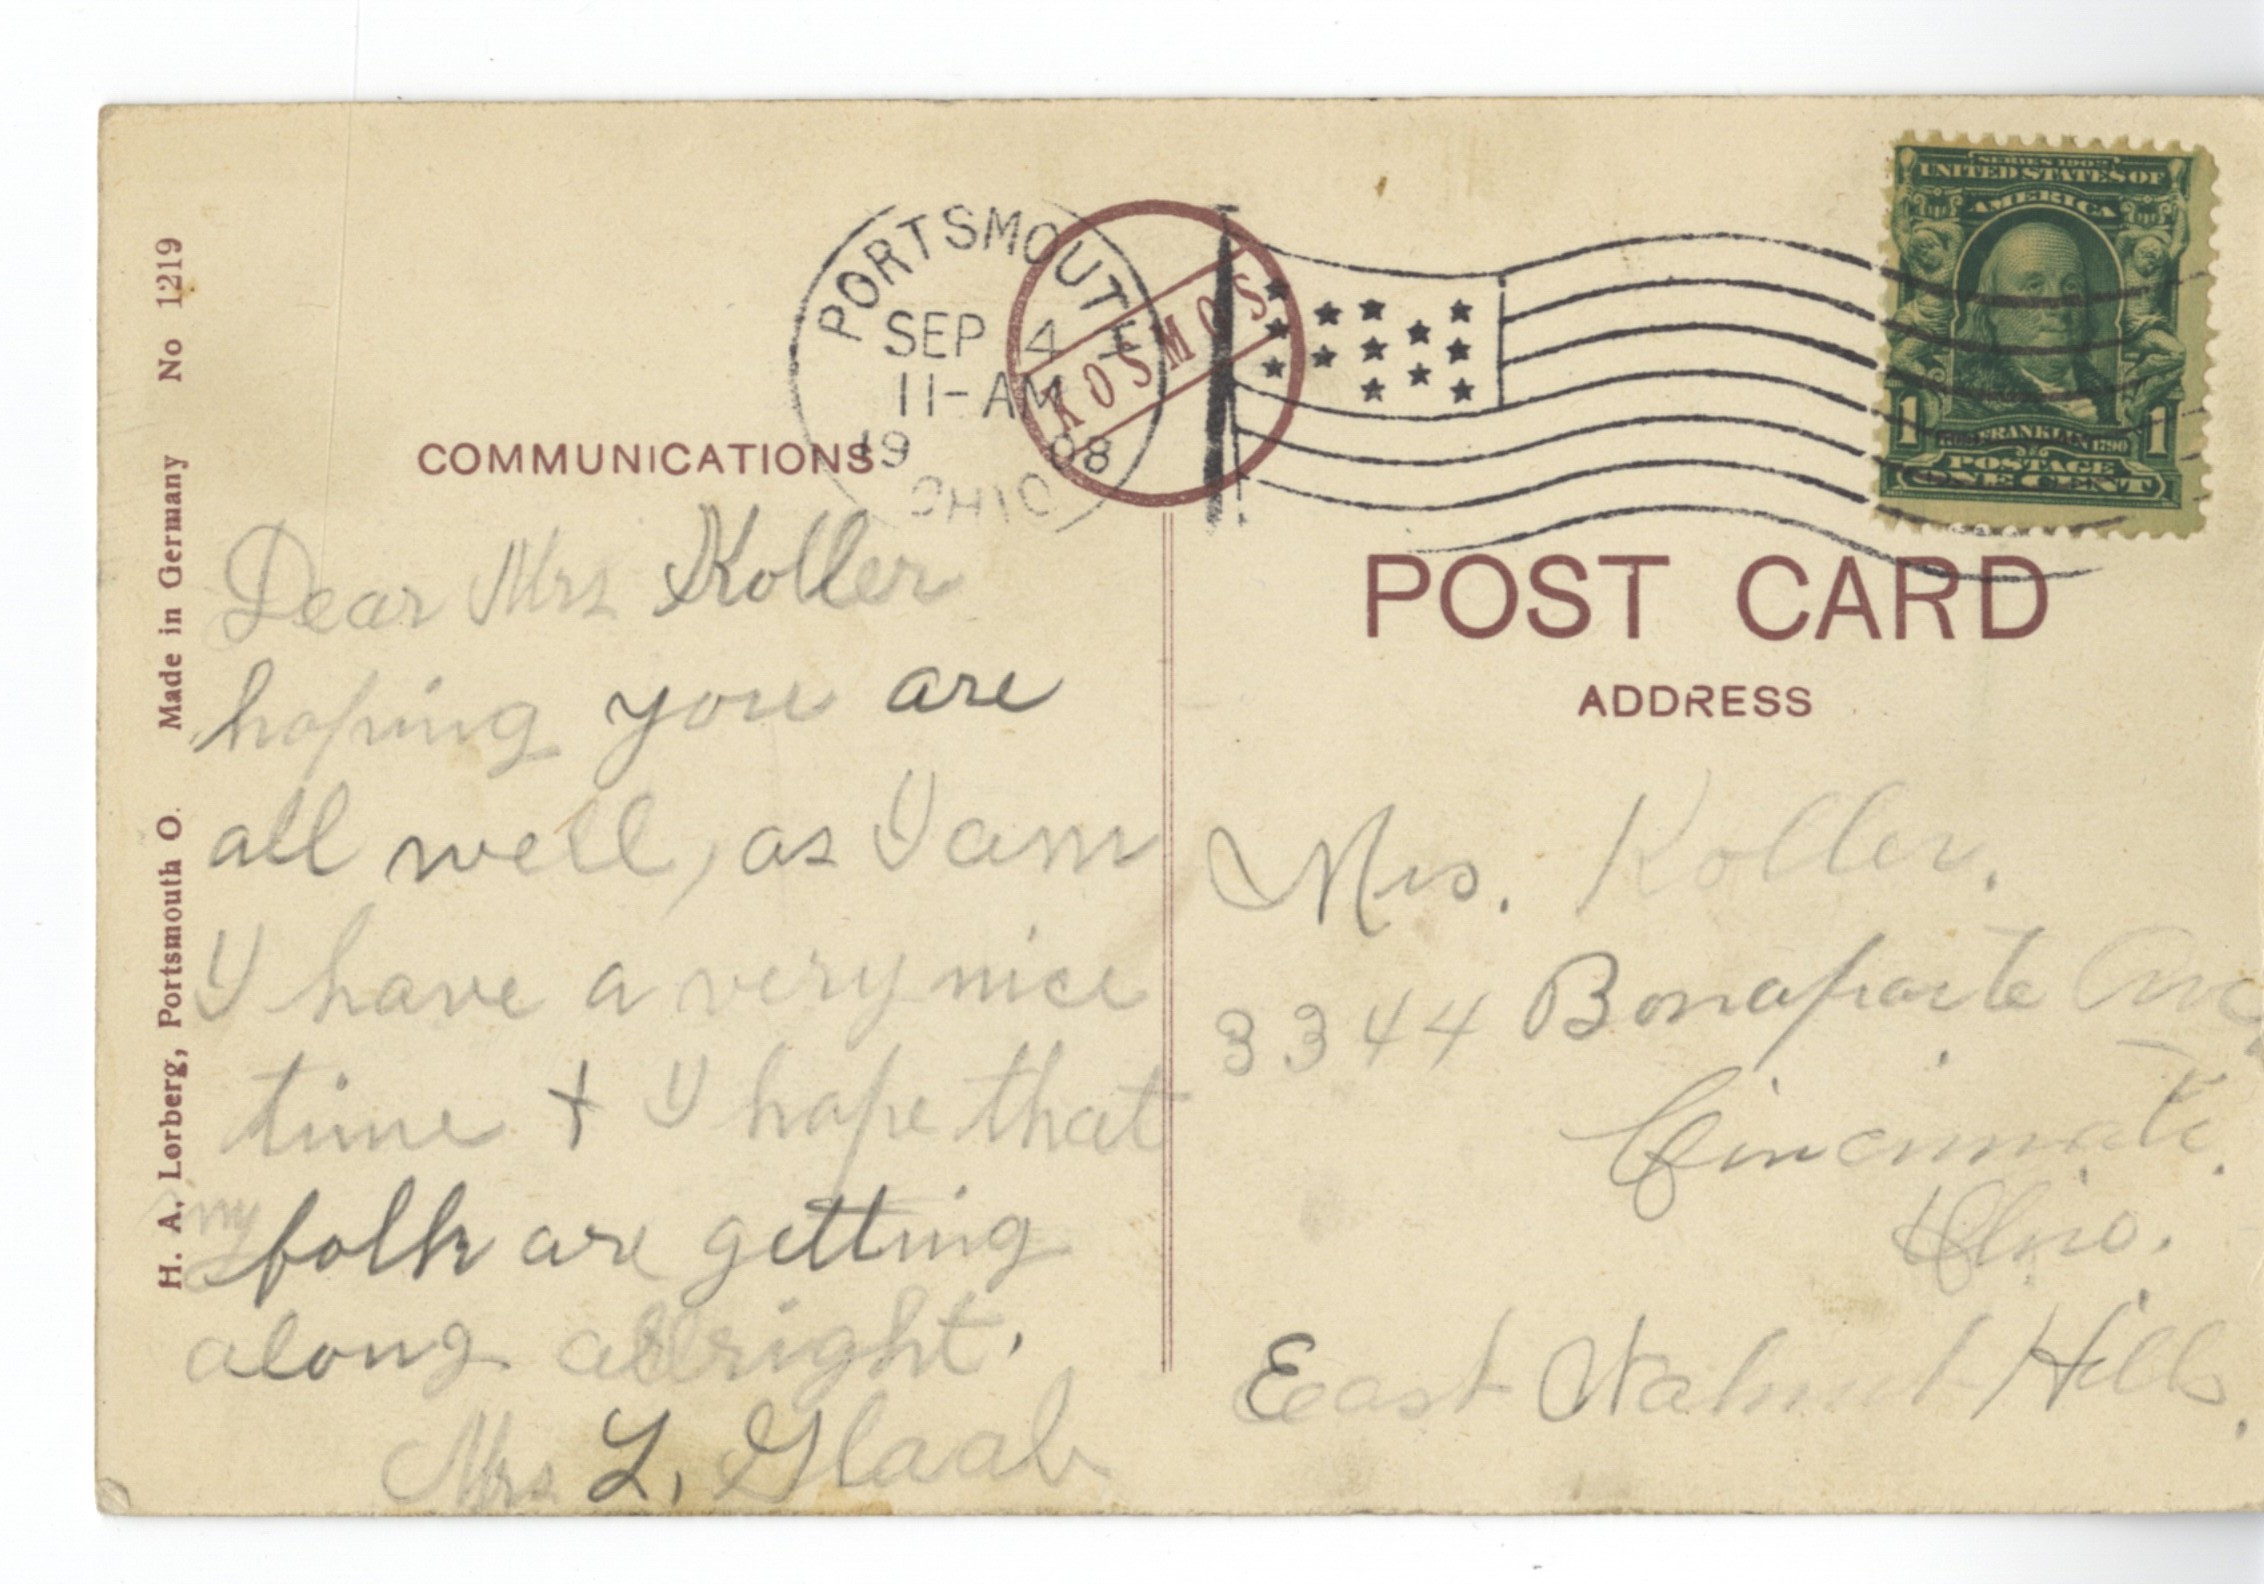 H. A. Lorberg, Portsmouth O. Made in Germany No 1219
COMMUNICATIONS
PORTSMOUTH
SEP 4
11-AM
1908
OHIO
KOSMOS
SERIES 1902
UNITED STATES OF
AMERICA
1 FRANKLIN 1790 1
POSTAGE
ONE CENT
POST CARD
ADDRESS
Dear Mrs Koller
hoping you are
all well, as I am
I have a very nice
time + I hope that
my folk are getting
along allright.
Mrs L. Glaab
Mrs. Koller.
3344 Bonaparte Ave,
Cincinnati.
Ohio.
East Walnut Hills.